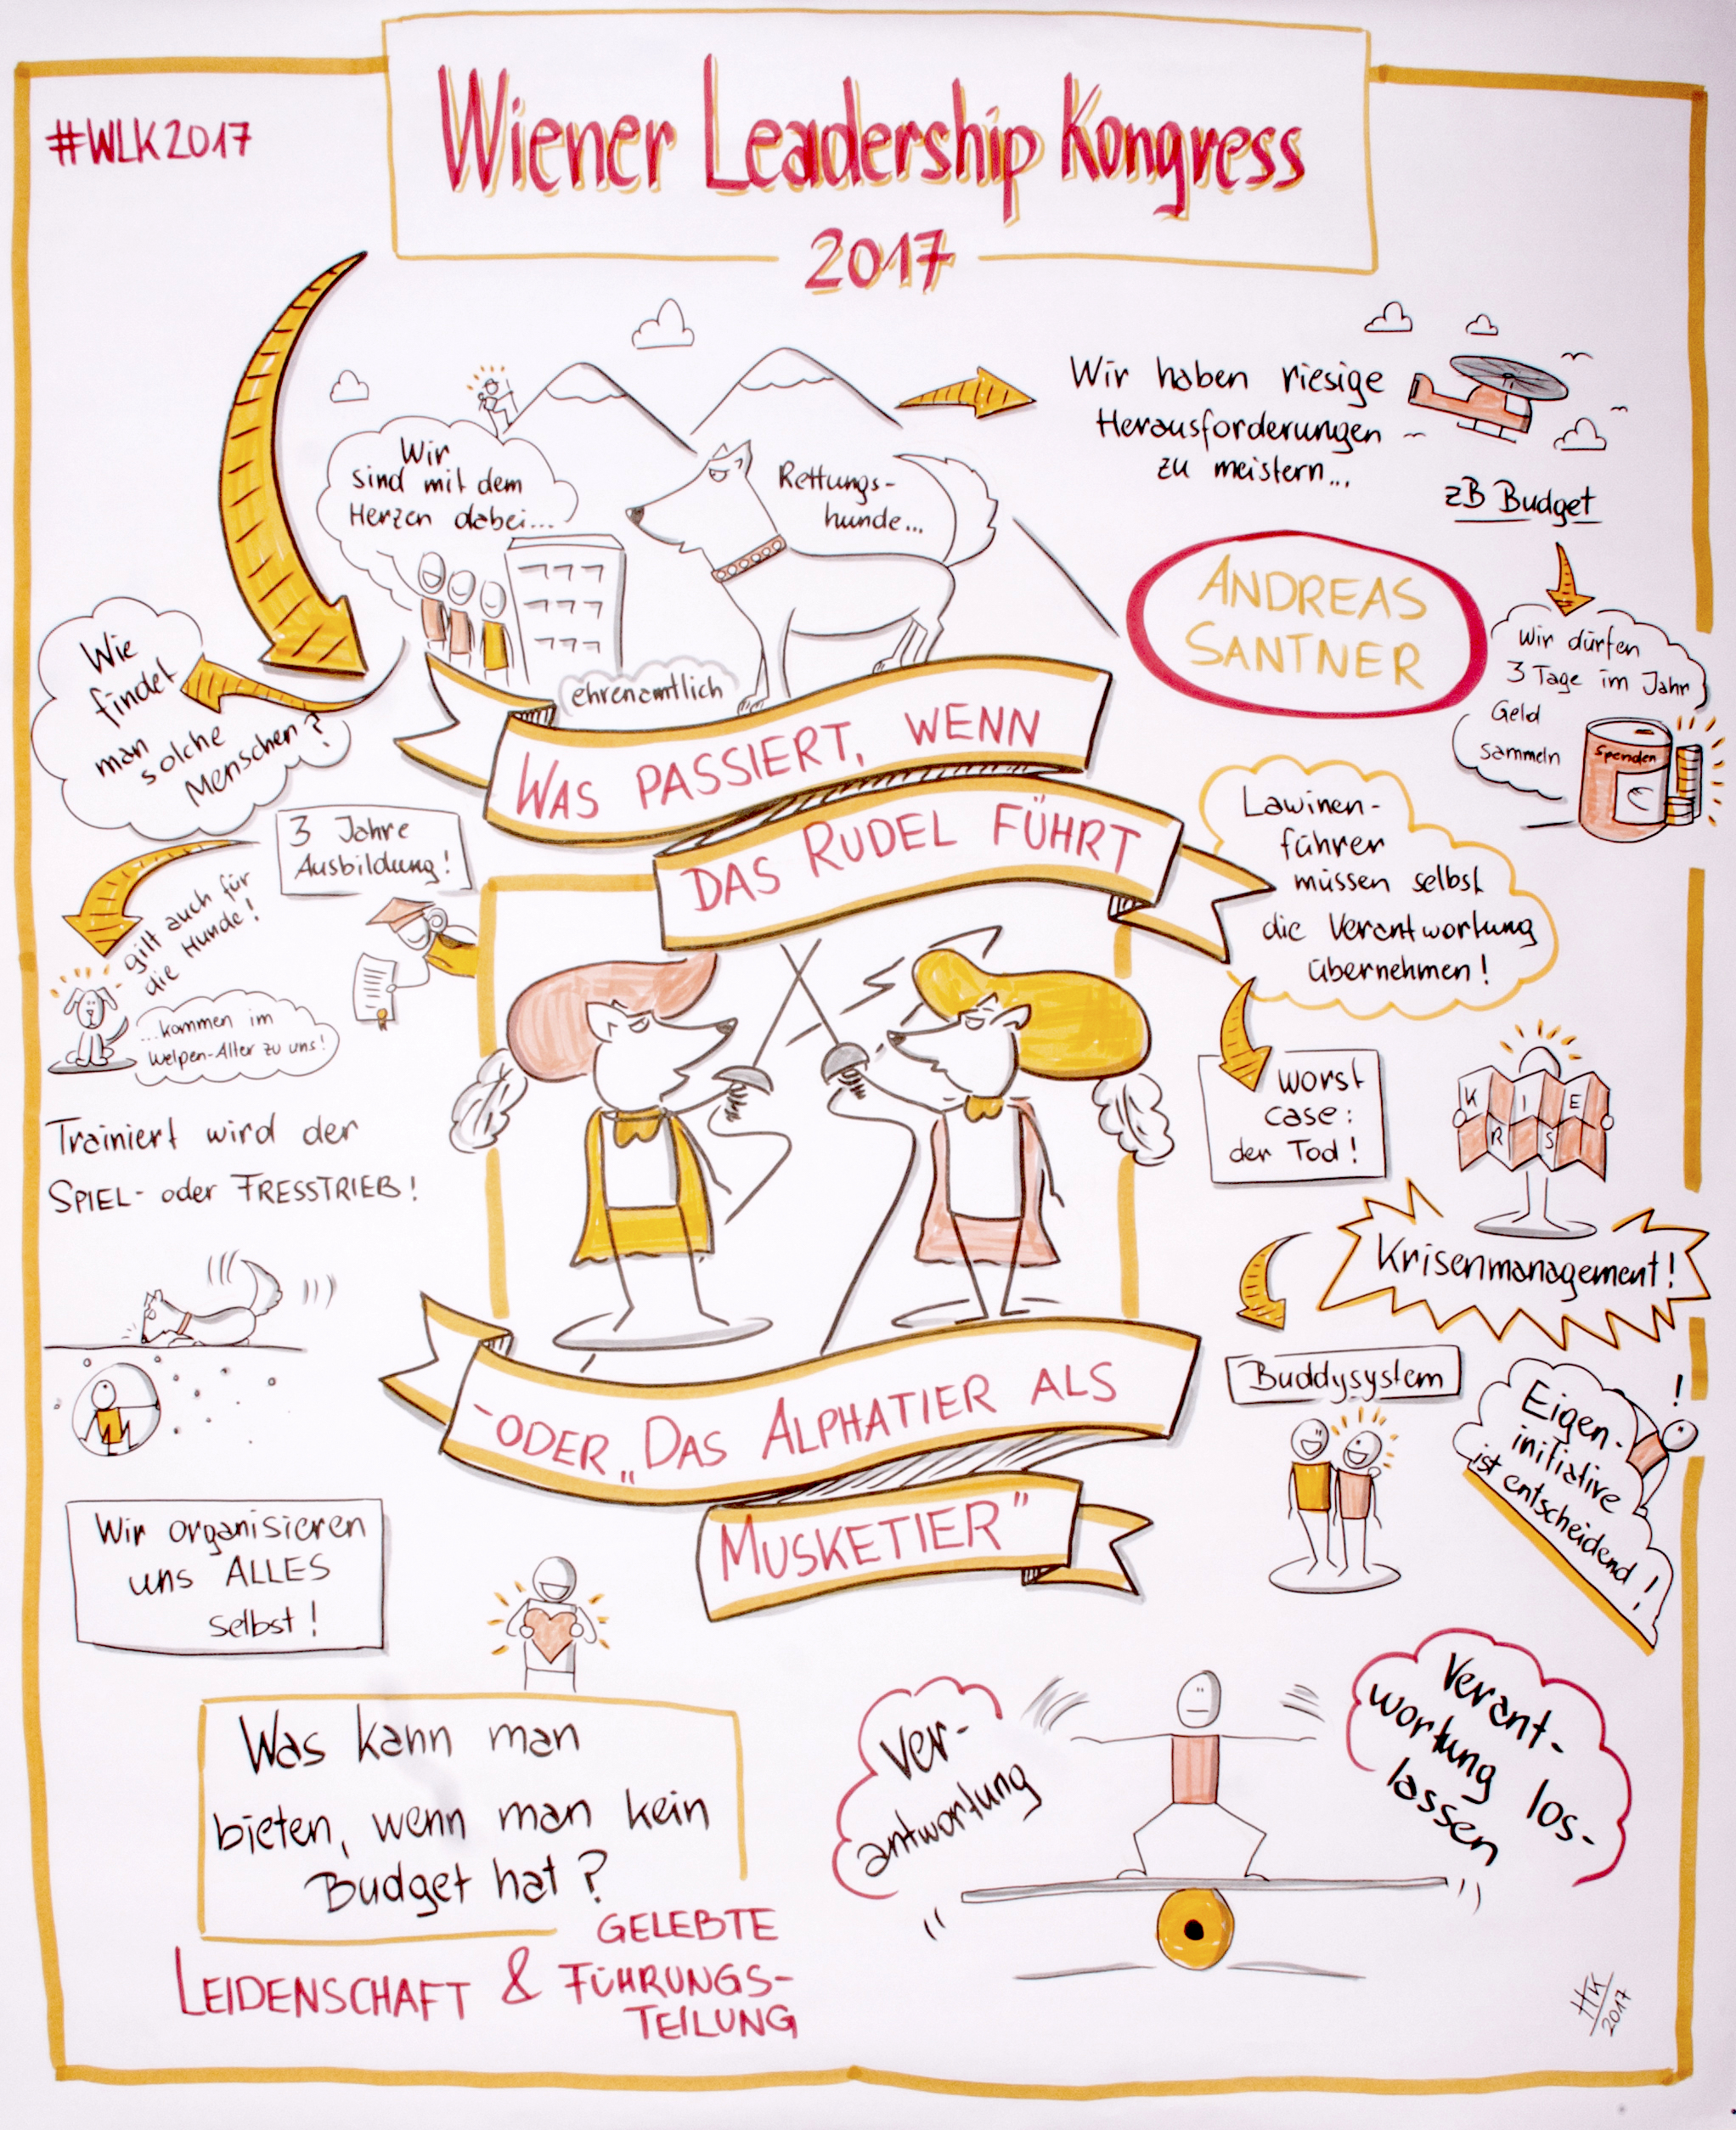 #WLK2017
Wiener Leadership Kongress
2017
Wir
sind mit dem
Herzen dabei...
Rettungs-
hunde...
ehrenamtlich
Wir haben riesige
Herausforderungen
zu meistern...
zB Budget
ANDREAS
SANTNER
Wir dürfen
3 Tage im Jahr
Geld
sammeln
Spenden
€
Wie
findet
man
solche
Menschen?
WAS PASSIERT, WENN
DAS RUDEL FÜHRT
3 Jahre
Ausbildung!
gilt auch für
die Hunde!
...kommen im
Welpen-Alter zu uns!
Trainiert wird der
SPIEL- oder FRESSTRIEB!
Lawinen-
führer
müssen selbst
die Verantwortung
übernehmen!
worst
case:
der Tod!
K I E
R S
Krisenmanagement!
Buddysystem
!
Eigen-
initiative
ist entscheidend!
- ODER „DAS ALPHATIER ALS
MUSKETIER"
Wir organisieren
uns ALLES
selbst!
Was kann man
bieten, wenn man kein
Budget hat?
LEIDENSCHAFT &
GELEBTE
FÜHRUNGS-
TEILUNG
Ver-
antwortung
Verant-
wortung los-
lassen
HK
2017